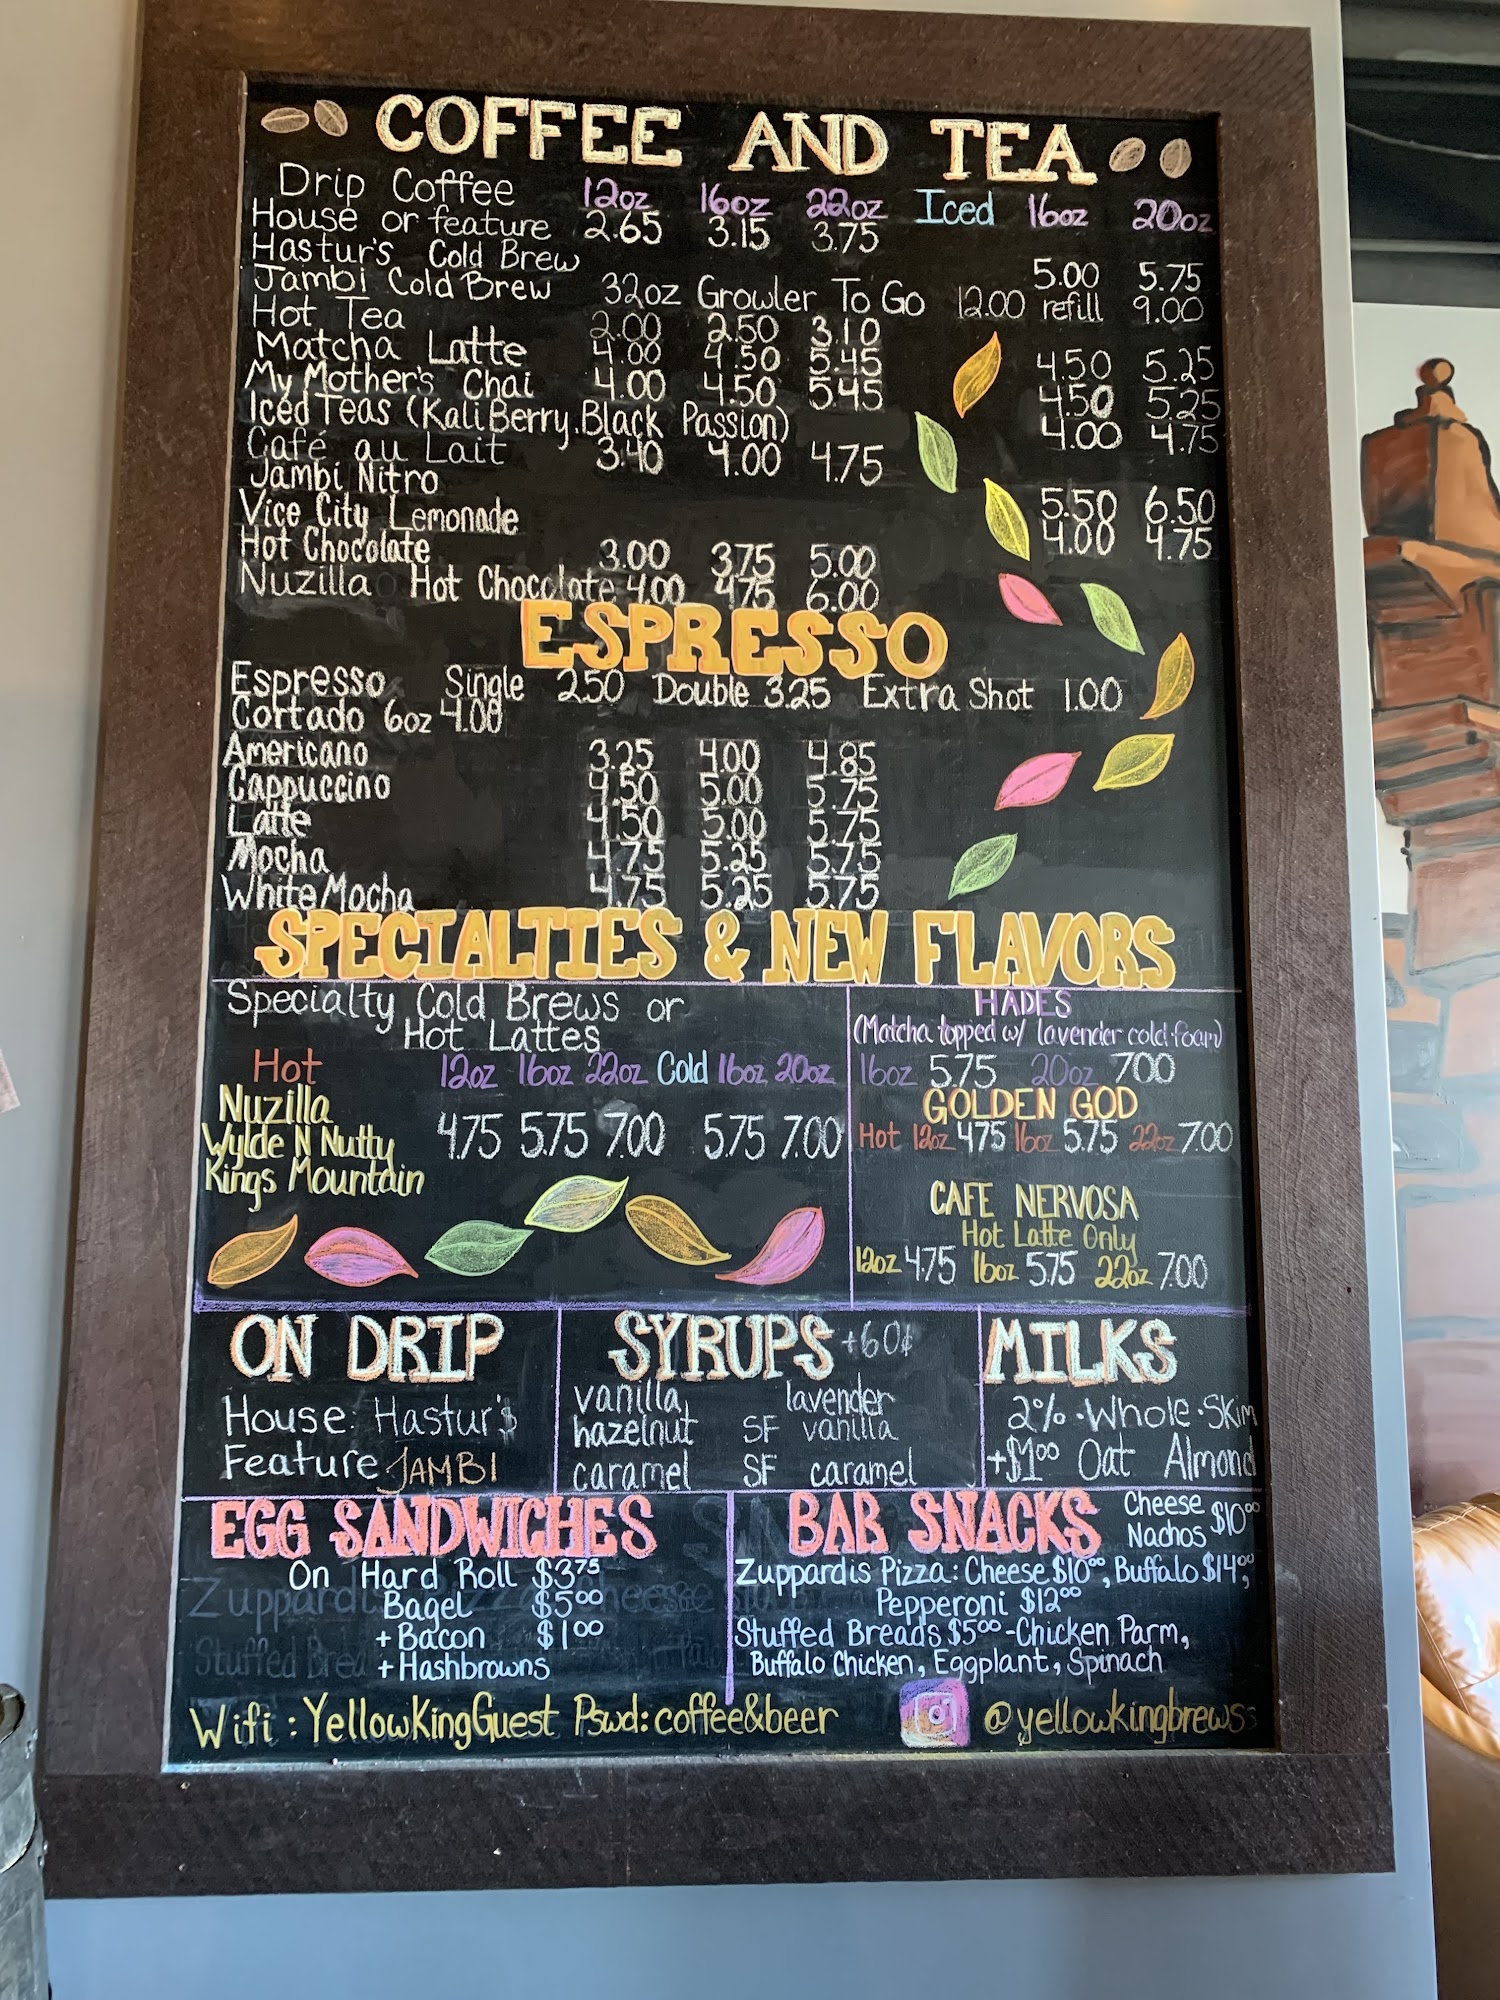 COFFEE AND TEA
Drip Coffee 12oz 16oz 22oz Iced 16oz 20oz
House or feature 2.65 3.15 3.75
Hastur's Cold Brew 5.00 5.75
Jambi Cold Brew 32oz Growler To Go 12.00 refill 9.00
Hot Tea 2.00 2.50 3.10
Matcha Latte 4.00 4.50 5.45 4.50 5.25
My Mother's Chai 4.00 4.50 5.45 4.50 5.25
Iced Teas (Kali Berry, Black Passion) 4.00 4.75
Café au Lait 3.40 4.00 4.75
Jambi Nitro 5.50 6.50
Vice City Lemonade 4.00 4.75
Hot Chocolate 3.00 3.75 5.00
Nuzilla Hot Chocolate 4.00 4.75 6.00
ESPRESSO
Espresso Single 2.50 Double 3.25 Extra Shot 1.00
Cortado 6oz 4.00
Americano 3.25 4.00 4.85
Cappuccino 4.50 5.00 5.75
Latte 4.50 5.00 5.75
Mocha 4.75 5.25 5.75
White Mocha 4.75 5.25 5.75
SPECIALTIES & NEW FLAVORS
Specialty Cold Brews or
Hot Lattes
Hot 12oz 16oz 22oz Cold 16oz 20oz
Nuzilla
Wylde N Nutty 4.75 5.75 7.00 5.75 7.00
Kings Mountain
HADES
(Matcha topped w/ lavender cold foam)
16oz 5.75 20oz 7.00
GOLDEN GOD
Hot 12oz 4.75 16oz 5.75 22oz 7.00
CAFE NERVOSA
Hot Latte Only
12oz 4.75 16oz 5.75 22oz 7.00
ON DRIP
House: Hastur's
Feature JAMBI
SYRUPS +60¢
vanilla lavender
hazelnut SF vanilla
caramel SF caramel
MILKS
2% · Whole · Skim
+$1.00 Oat Almond
EGG SANDWICHES
On Hard Roll $3.75
Bagel $5.00
+ Bacon $1.00
+ Hashbrowns
BAR SNACKS Cheese Nachos $10.00
Zuppardis Pizza: Cheese $10.00, Buffalo $14.00,
Pepperoni $12.00
Stuffed Breads $5.00 - Chicken Parm,
Buffalo Chicken, Eggplant, Spinach
Wifi: YellowKingGuest Pswd: coffee&beer @yellowkingbrews